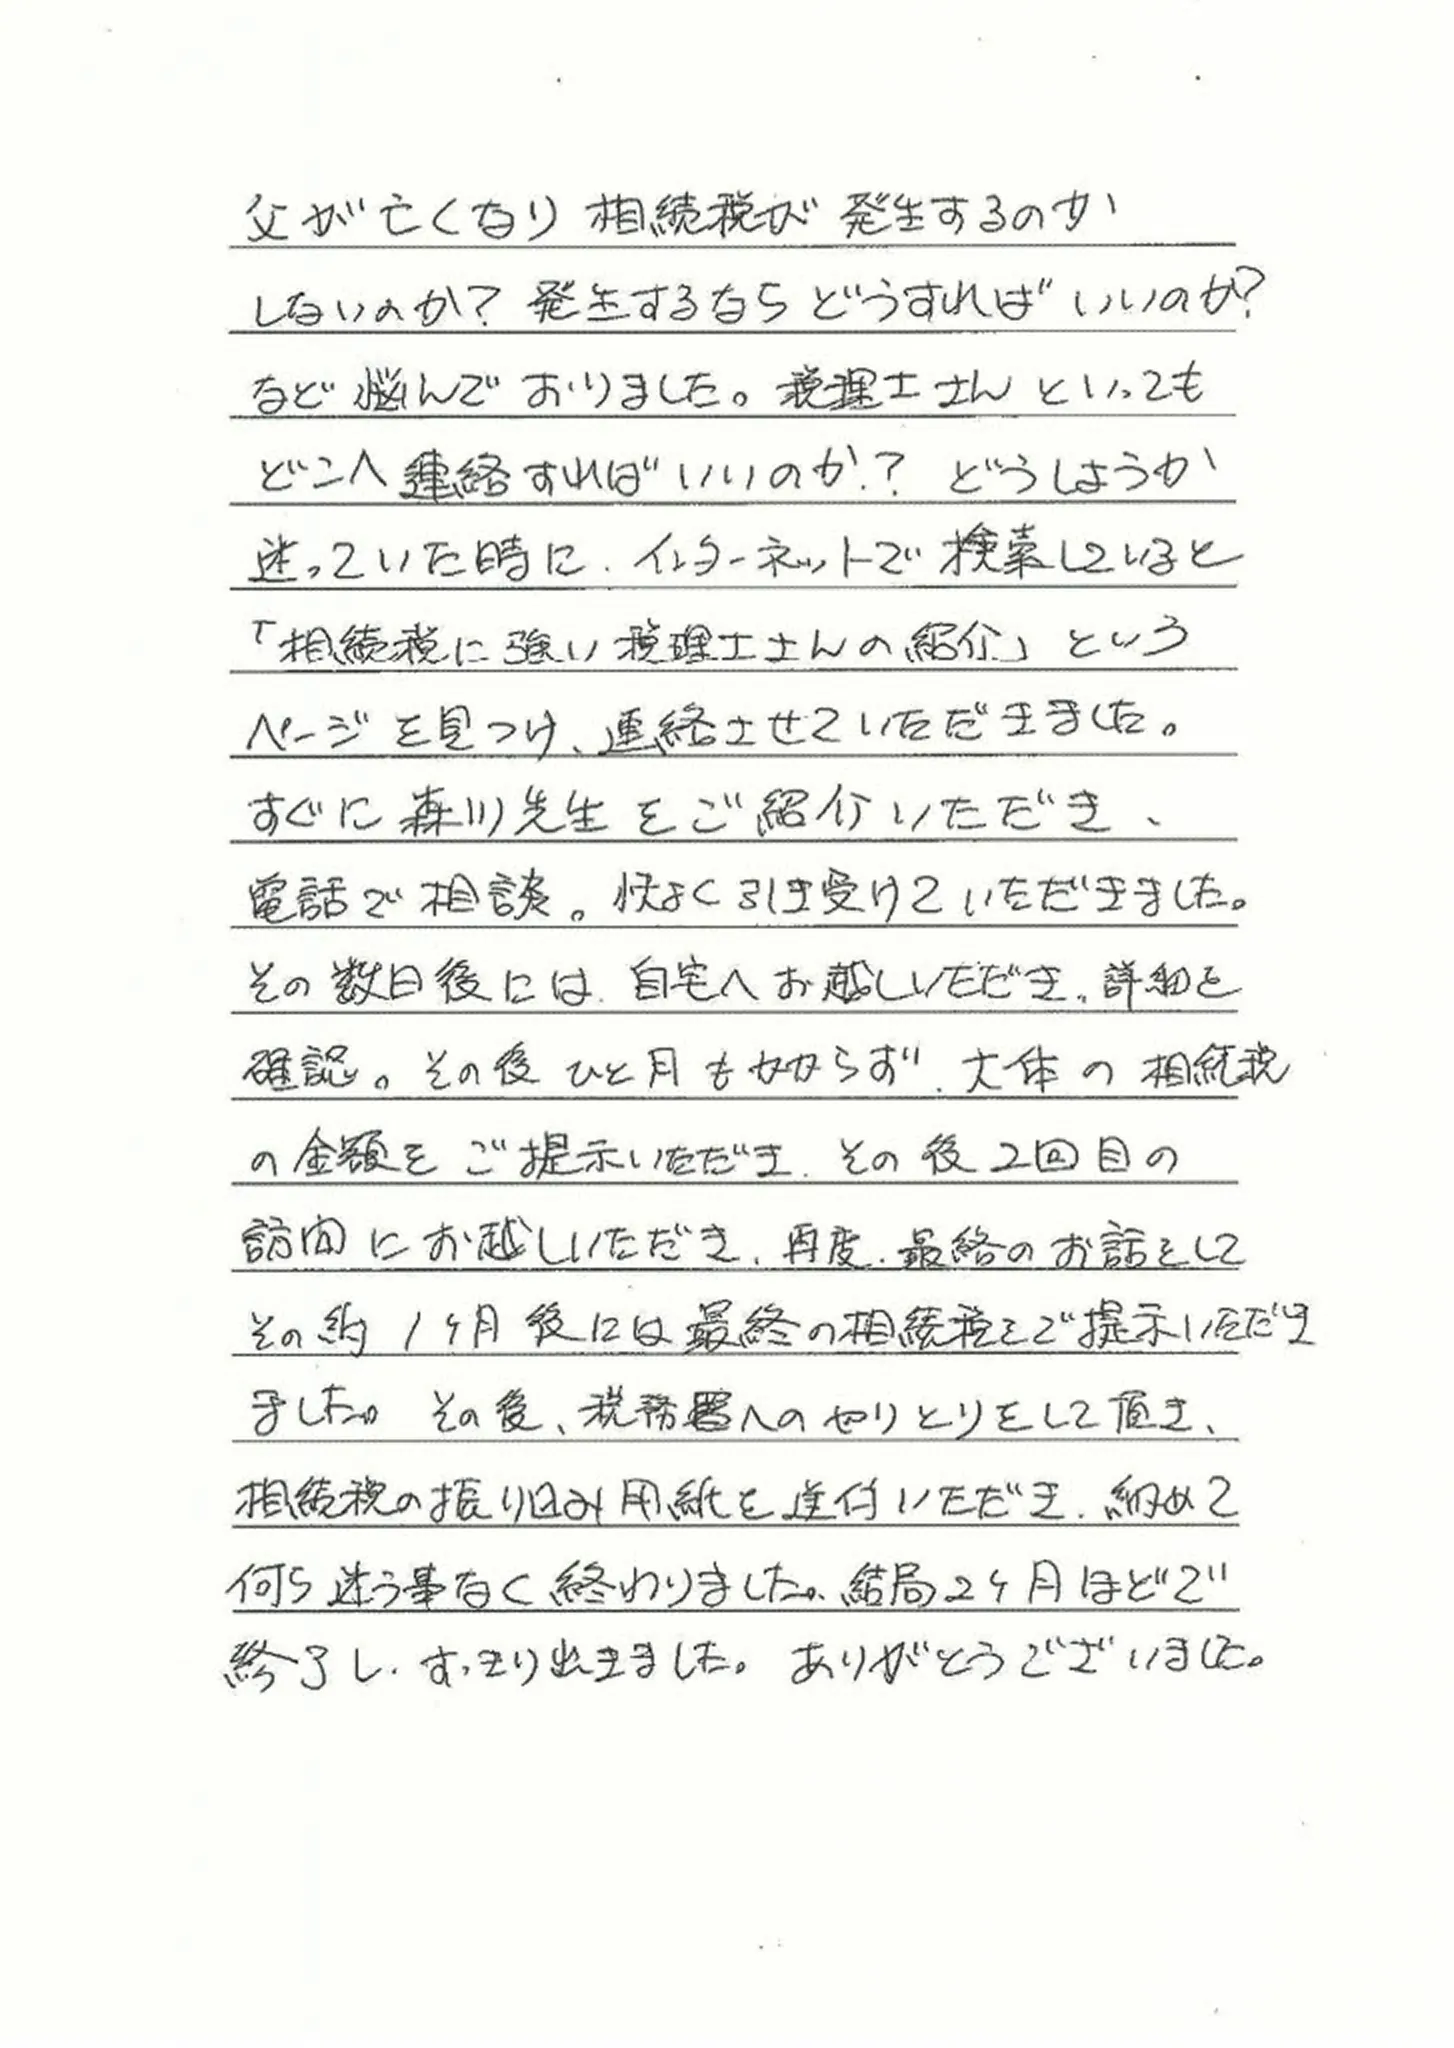 父が亡くなり 相続税が 発生するのか
しないのか? 発生するなら どうすれば いいのか?
など 悩んで おりました。税理士さん といっても
どこへ 連絡すればいいのか? どうしようか
迷っていた時に、インターネットで 検索していると
「相続税に強い税理士さんの紹介」という
ページを見つけ、連絡させていただきました。
すぐに 森川先生を ご紹介いただき、
電話で相談。快よく引き受けていただきました。
その数日後には、自宅へお越しいただき、詳細を
確認。その後 ひと月もかからず、大体の 相続税
の金額を ご提示いただき、その後2回目の
訪問にお越しいただき、再度、最終のお話をして
その約1ヶ月後には最終の相続税をご提示いただき
ました。その後、税務署へのやりとりをして頂き、
相続税の振り込み用紙を送付いただき、納めて
何ら迷う事なく終わりました。結局2ヶ月ほどで
終了し、すっきり出きました。ありがとうございました。